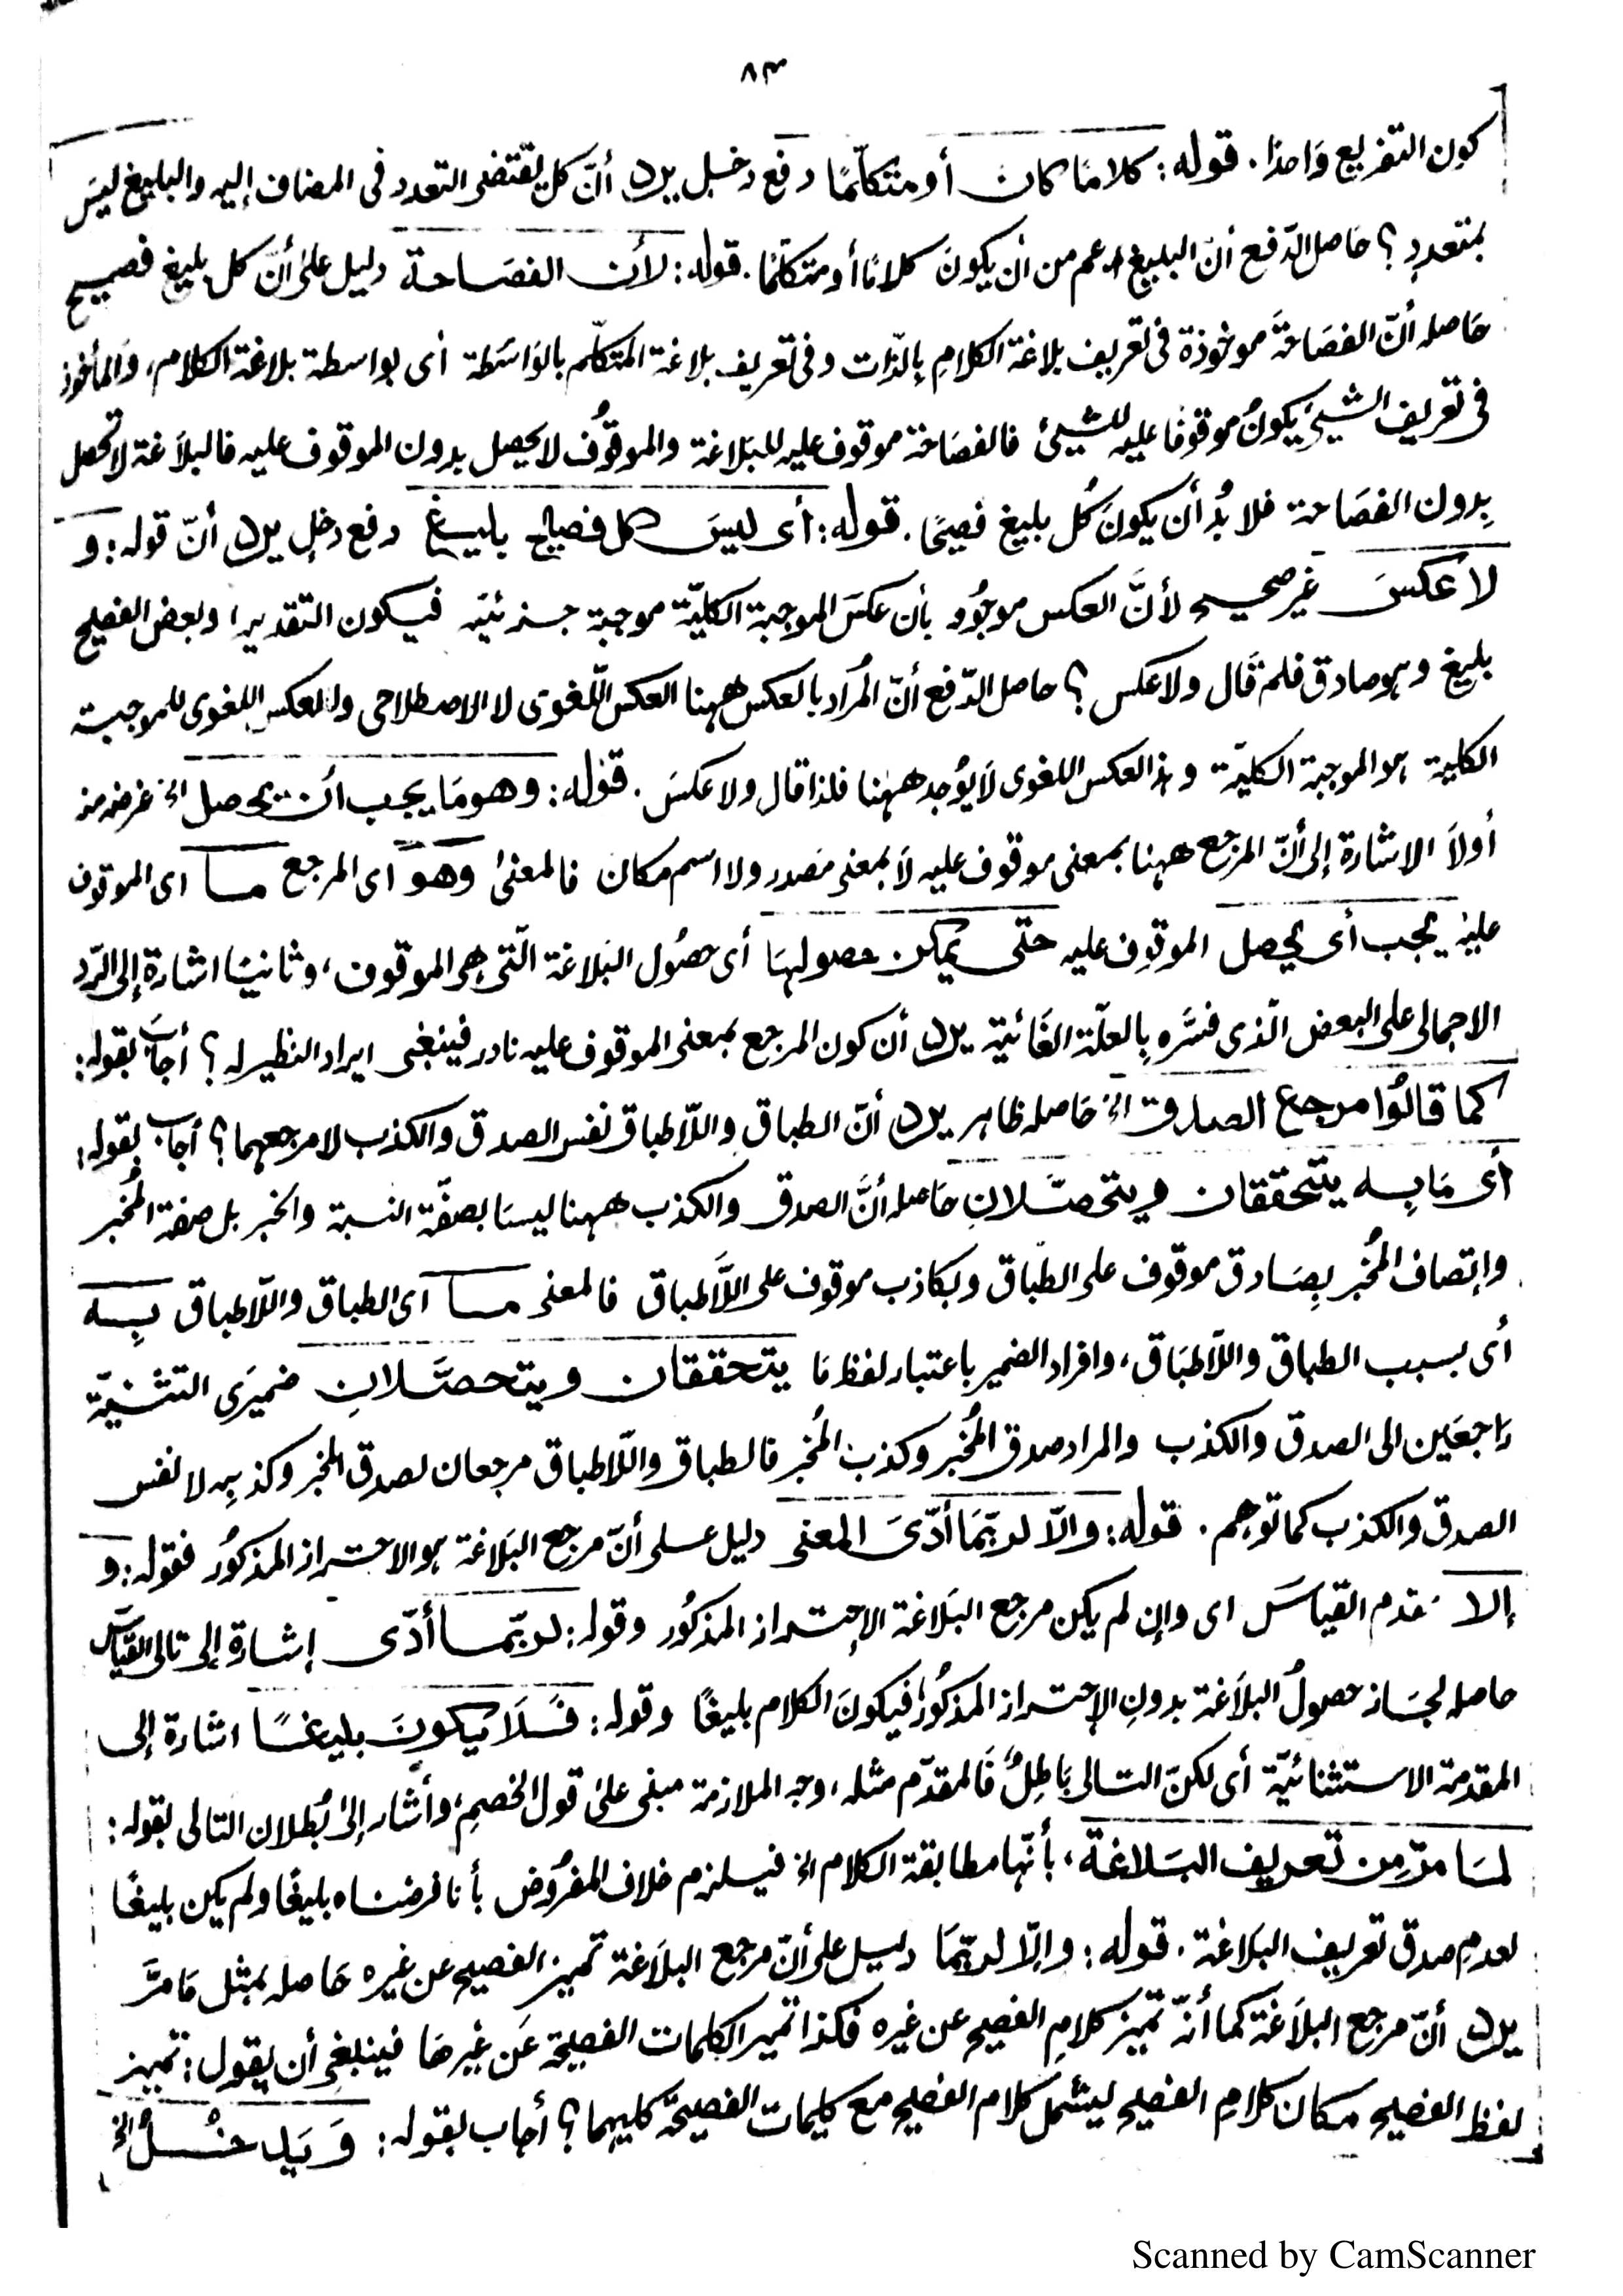 ۸۳
كون التفريع واحدًا. قوله: كلامًا كان أو متكلّمًا دفع دخل يرد أنّ كل يقتضى التعدد فى المضاف إليه والبليغ ليسَ
بمتعددٍ؟ حَاصل الدّفع أنّ البليغ أعم من أن يكونَ كلامًا أو متكلّمًا. قوله: لأن الفصَاحة دليل علىٰ أنّ كل بليغ فصيح
حَاصله أنّ الفصَاحَة موخوذة فى تعريف بلاغة الكلامِ بالذّات وفى تعريف بلاغة المتكلّم بالوَاسَطة أى بواسطة بلاغة الكلام، وَالمأخوذ
فى تعريف الشيئ يكونُ موقوفًا عليه للشيئ فالفصَاحة موقوف عليه للبَلاغة والموقُوف لا يحصل بدون الموقوف عليه فالبلاَغة لا تحصل
بِدون الفصَاحة فلا بُدّ أن يكونَ كُل بليغ فصيحًا. قوله: أى ليسَ كل فصيح بليغ دفع دخل يرد أنّ قوله: و
لا عكسَ غير صحيح لأنَّ العكس موجُود بأن عكسَ الموجبة الكليّة موجبة جزئيّه فيكون التقدير او بعض الفصيح
بليغ وهو صادق فلم قَال ولا عكس؟ حاصل الدّفع أنّ المُرَاد بالعكس ههنا العكس اللّغوى لا الاصطلاحى والعكس اللغوى للموجبة
الكلية هو الموجبة الكليّة وهذا العكس اللغوى لاَ يُوجد ههُنا فلذا قال ولا عكسَ. قوله: وهو مَا يجب أن يحصل الخ غرضه منه
أولاً الاشارة إلى أنّ المرجع ههنا بمعنى موقوف عليه لاَ بمعنى مَصدر ولا اسم مكان فالمعنىٰ وهو اى المرجع ما اى الموقوف
عليْه يجب أى يحصل الموقوف عليه حتّى يمكن حصولهَا أى حصُول البَلاغة الّتى هى الموقوف، وثانيًا اشارة إلى الرّد
الاجمالى على البعض الّذى فسَّره بِالعلّة الغَائية يرد أن كون المرجع بمعنى الموقوف عليه نادر فينبغى ايراد النظير له؟ أجَابَ بقوله:
كما قالُوا مرجع الصدق الخ حَاصله ظاهر يرد أنّ الطباق واللّاطباق نفس الصدق وَالكذب لا مرجعهما؟ أجابَ بقوله:
أى مَا بِه يتحققان ويتحصّلانِ حَاصله أنَّ الصدق والكذب ههنا ليسَا بصفَة النسبة والخبر بل صفة المُخبر
وإتصاف المُخبر بِصَادق موقوف على الطّباق وبكاذب موقوف على اللَّاطباق فالمعنى ما أى الطباق واللّاطباق بِه
أى بسبب الطباق واللّاطبَاق، وافراد الضمير باعتبار لفظ مَا يتحققان ويتحصَّلانِ ضميرَى التثنيّة
رَاجعَين الى الصدق والكذب والمراد صدق المُخبر وكذب المُخبر فالطباق واللّاطباق مرجعان لصدق المخبر وكذبه لا نفس
الصدق والكذب كما توهم. قوله: وإلّا لربّمَا أدّىَ المعنى دليل على أنّ مرجع البَلاغة هو الاحتراز المذكُور فقوله: و
إلا مقدم القيَاسَ اى وإن لم يكن مرجع البَلاغة الإحتراز المذكُور وقوله: لربّما أدّى إشارة إلى تالى القيَاس
حاصله لجَاز حصولُ البلاَغة بدونِ الإحتراز المذكُور فيكونَ الكلام بليغًا وقوله: فَلَا يكونَ بليغًا اشارة إلى
المقدمة الاستثنائيّة أى لكنّ التالى بَاطِلٌ فَالمقدّم مثله، وجه الملازمة مبنى علىٰ قول الخصم، وأشار إلىٰ بُطلان التالى بقوله:
لمَا مرّ مِن تعريف البَلاغة، بأنّها مطابقة الكلام الخ فيلزم خلاف المفرُوض بأنا فرضناه بليغًا ولم يكن بليغًا
لعدمِ صدق تعريف البَلاغة. قوله: وإلّا لربّمَا دليل على أنّ مرجع البلاَغة تميز الفصيح عن غيره حَاصله بمثل مَا مرَّ
يرد أنّ مرجع البلاَغة كما أنّه تميز كلامِ الفصيح عن غيره فكذا تميز الكلمات الفصيحة عَن غيرهَا فينبغى أن يقول: تميز
لفظ الفصيح مكان كلامِ الفصيح ليشمل كلام الفصيح مع كليمات الفصيحَة كليهما؟ أجاب بقوله: وَيَدخُلُ الخ
Scanned by CamScanner